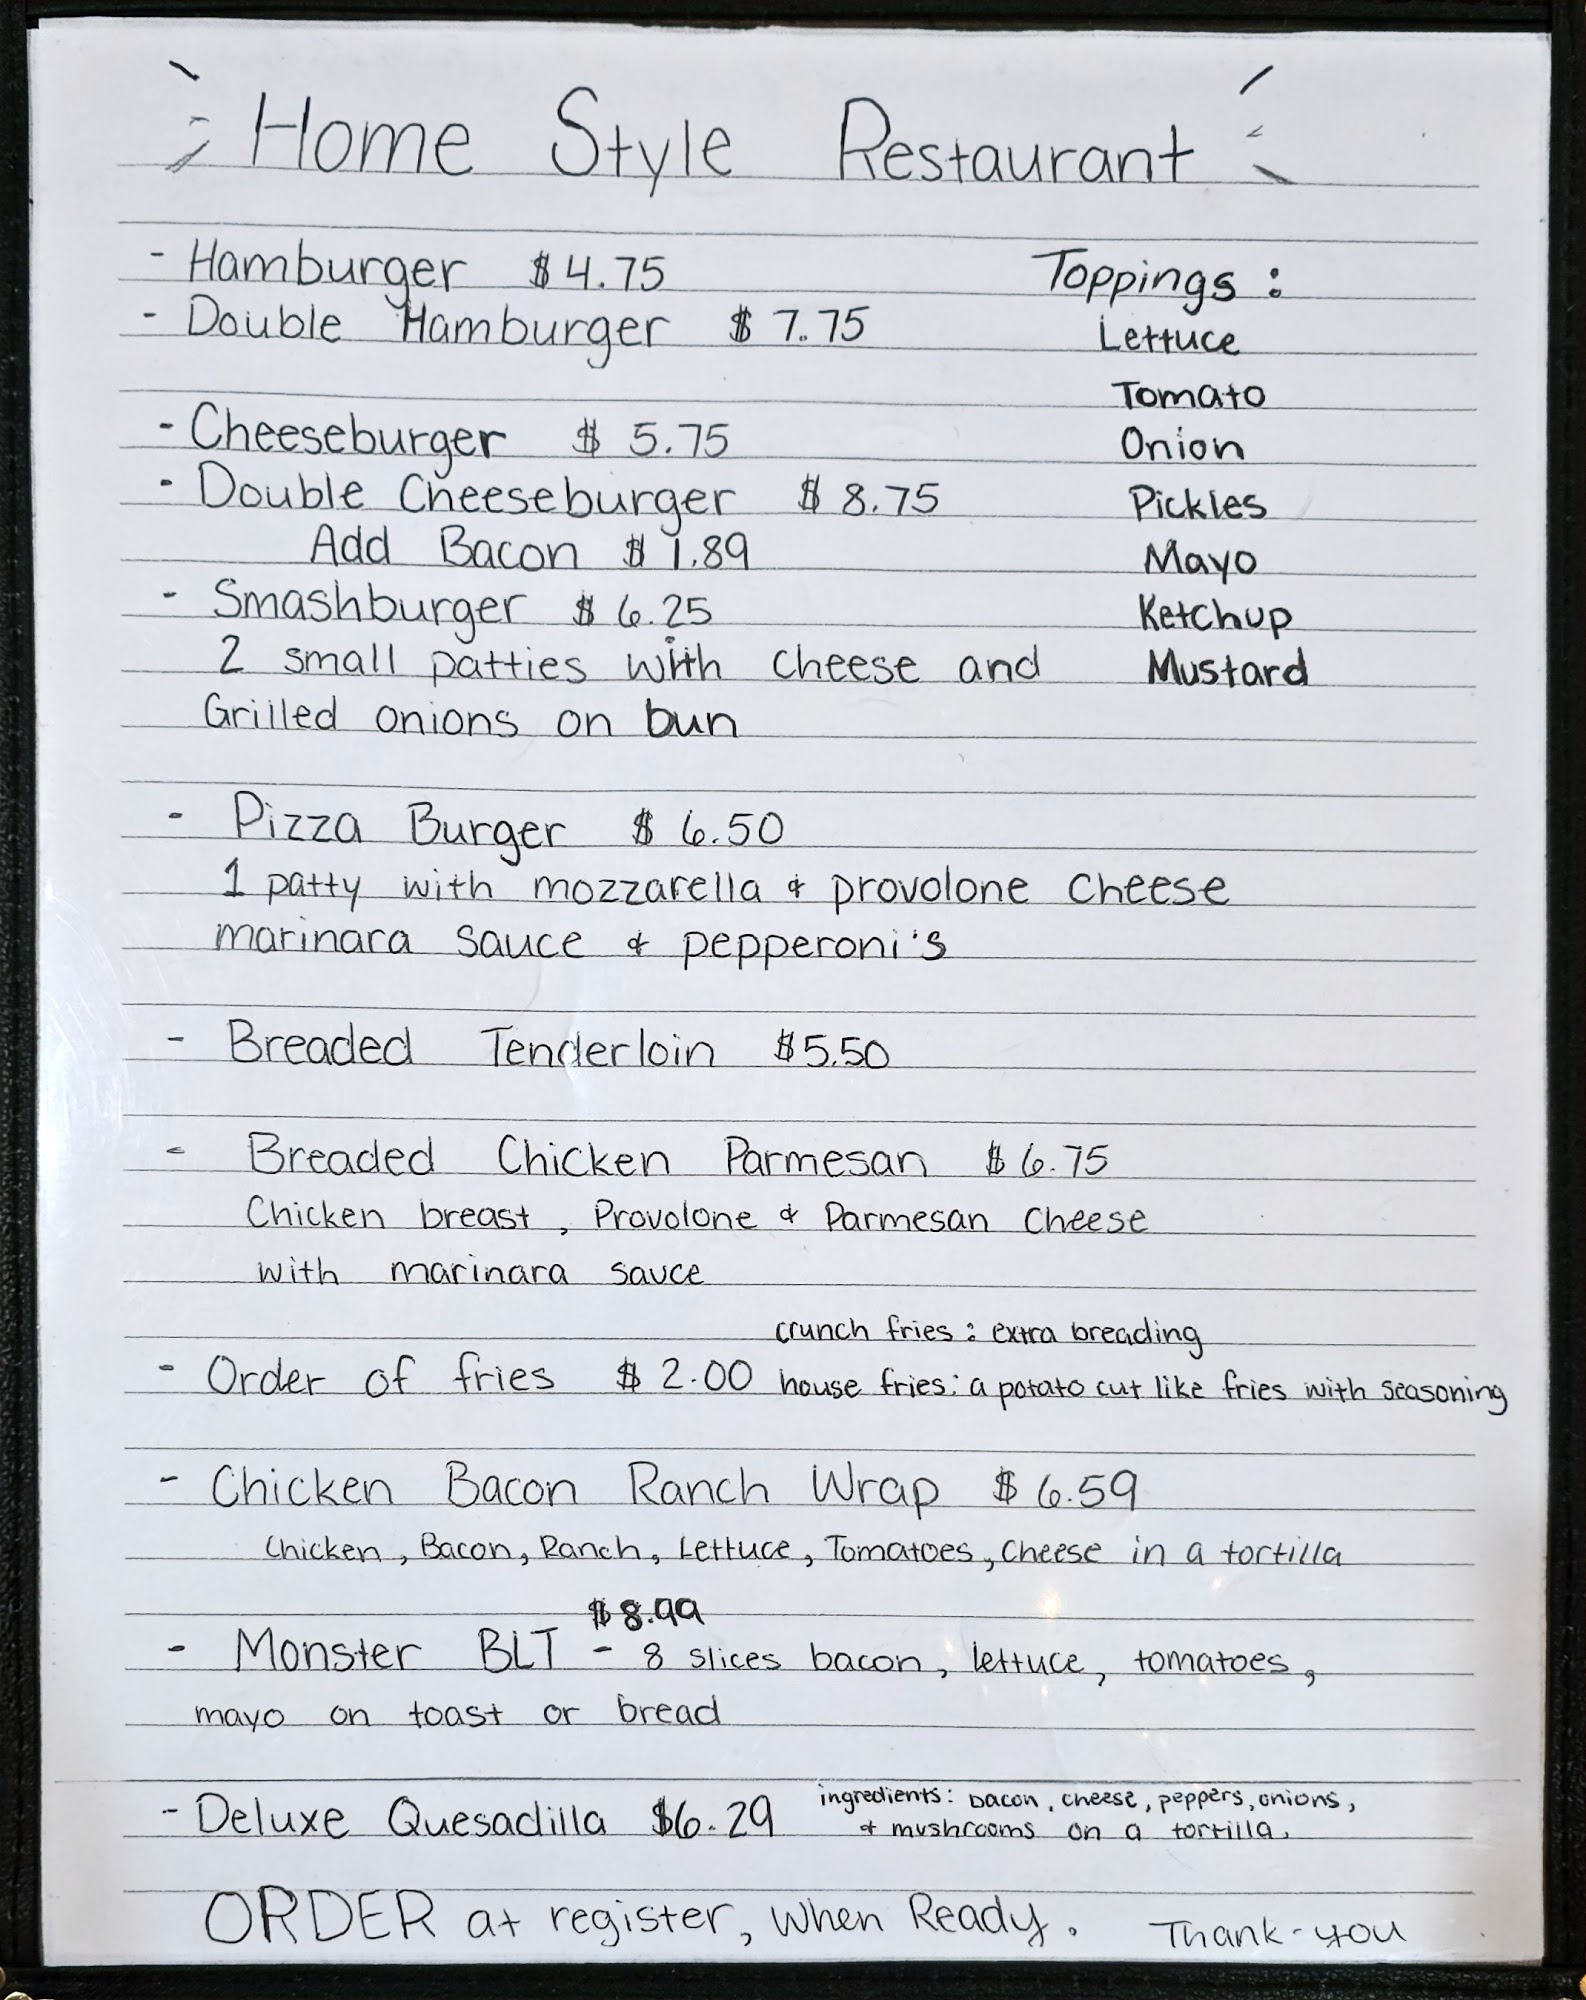 Home Style Restaurant
- Hamburger $4.75
- Double Hamburger $7.75
- Cheeseburger $5.75
- Double Cheeseburger $8.75
Add Bacon $1.89
- Smashburger $6.25
2 small patties with cheese and
Grilled onions on bun
Toppings:
Lettuce
Tomato
Onion
Pickles
Mayo
Ketchup
Mustard
- Pizza Burger $6.50
1 patty with mozzarella & provolone cheese
marinara sauce & pepperoni's
- Breaded Tenderloin $5.50
- Breaded Chicken Parmesan $6.75
Chicken breast, Provolone & Parmesan Cheese
with marinara sauce
crunch fries: extra breading
- Order of fries $2.00 house fries: a potato cut like fries with seasoning
- Chicken Bacon Ranch Wrap $6.59
Chicken, Bacon, Ranch, Lettuce, Tomatoes, Cheese in a tortilla
$8.99
- Monster BLT - 8 slices bacon, lettuce, tomatoes,
mayo on toast or bread
- Deluxe Quesadilla $6.29 ingredients: bacon, cheese, peppers, onions,
& mushrooms on a tortilla.
ORDER at register, when Ready. Thank-you